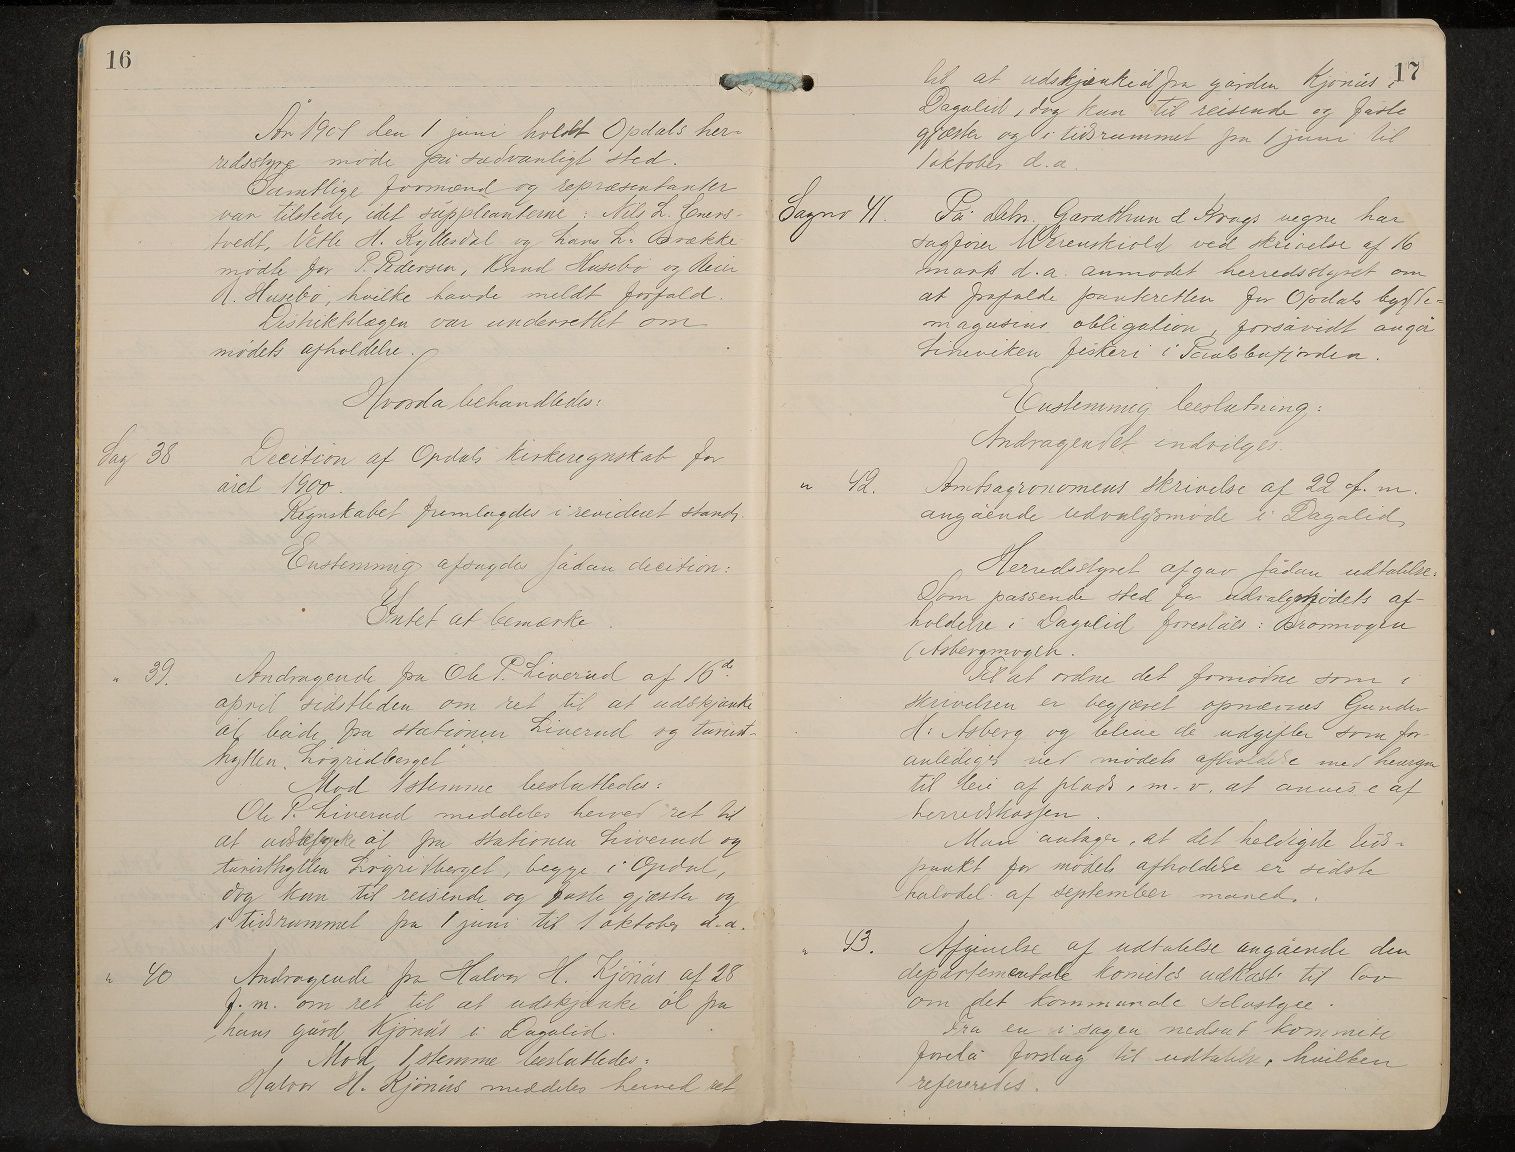 16
År 1901 den 1 juni holdt Opdals her-
redsstyre møde på sædvanligt sted.
Samtlige formænd og repræsentanter
var tilstede, idet suppleanterne: Nils L. Eners-
tvedt, Vetle H. Kyllesdal og Hans L. Brække
mødte for P. Pedersen, Knud Husebø og Reier
A. Husebø, hvilke havde meldt forfald.
Distriktslægen var underrettet om
mødets afholdelse.
Hvorda behandledes:
Sag 38 Decition af Opdals kirkeregnskab for
året 1900.
Regnskabet fremlagdes i revideret stand.
Enstemmig afsagdes sådan decition:
Intet at bemærke.
" 39. Andragende fra Ole P. Liverud af 16de
april sidstleden om ret til at udskjænke
øl både fra stationen Liverud og turist-
hytten "Løgridberget"
Mod 1 stemme besluttedes:
Ole P. Liverud meddeles herved ret til
at udskjænke øl fra stationen Liverud og
turisthytten Løgridberget, begge i Opdal,
dog kun til reisende og faste gjæster og
i tidsrummet fra 1 juni til 1 oktober d.a.
" 40 Andragende fra Halvor H. Kjønås af 28
f.m. om ret til at udskjænke øl fra
hans gård Kjønås i Dagalid.
Mod 1 stemme besluttedes:
Halvor H. Kjønås meddeles herved ret
17
til at udskjænke øl fra gården Kjønås i
Dagalid, dog kun til reisende og faste
gjæster og i tidsrummet fra 1 juni til
1 oktober d.a.
Sagno 41. På Dehr. Garathun & Krags vegne har
sagfører Werenskiold ved skrivelse af 16
mark d.a. anmodet herredsstyret om
at frafalde panteretten for Opdals bygde-
magasins obligation, forsåvidt angår
Lineviken fiskeri i Pålsbufjorden.
Enstemmig beslutning:
Andragendet indvilges.
" 42. Amtsagronomens skrivelse af 22 f.m.
angående udvalgsmøde i Dagalid
Herredsstyret afgav sådan udtalelse:
Som passende sted for udvalgsmødets af-
holdelse i Dagalid foreslåes: Bromogen
(Asbergmogen.
Til at ordne det fornødne som i
skrivelsen er begjæret opnævnes Gunder
H. Asberg og blive de udgifter som for-
anlediges ved mødets afholdelse med hensyn
til leie af plads, m.v. at anvise af
herredskassen.
Man antager, at det heldigste tids-
punkt for mødets afholdelse er sidste
halvdel af september måned.
" 43. Afgivelse af udtalelse angående den
departementale komites udkast til lov
om det kommunale selvstyre.
Fra en i sagen nedsat kommite
forelå forslag til udtalelse, hvilken
refereredes.